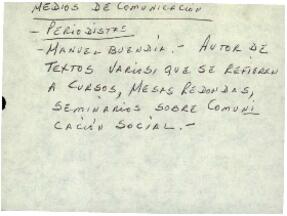 MEDIOS DE COMUNICACION
- PERIODISTAS
- MANUEL BUENDÍA.- AUTOR DE
TEXTOS VARIOS, QUE SE REFIEREN
A CURSOS, MESAS REDONDAS,
SEMINARIOS SOBRE COMUNI
CACIÓN SOCIAL.-